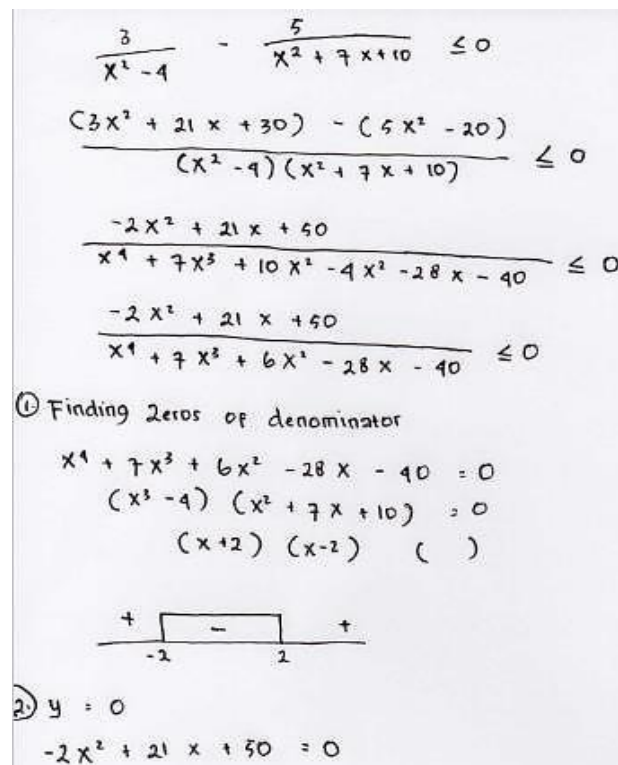 3/(x² - 4) - 5/(x² + 7x + 10) ≤ 0
((3x² + 21x + 30) - (5x² - 20))/((x² - 4)(x² + 7x + 10)) ≤ 0
(-2x² + 21x + 50)/(x⁴ + 7x³ + 10x² - 4x² - 28x - 40) ≤ 0
(-2x² + 21x + 50)/(x⁴ + 7x³ + 6x² - 28x - 40) ≤ 0
① Finding zeros of denominator
x⁴ + 7x³ + 6x² - 28x - 40 = 0
(x³ - 4) (x² + 7x + 10) = 0
(x+2) (x-2) ( )
+ - +
-2 2
2) y = 0
-2x² + 21x + 50 = 0